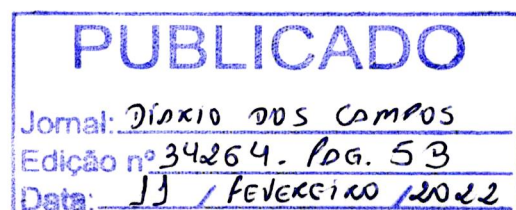 PUBLICADO
Jornal: DIÁRIO DOS CAMPOS
Edição nº 34264. PÁG. 5B
Data: 11 / FEVEREIRO / 2022